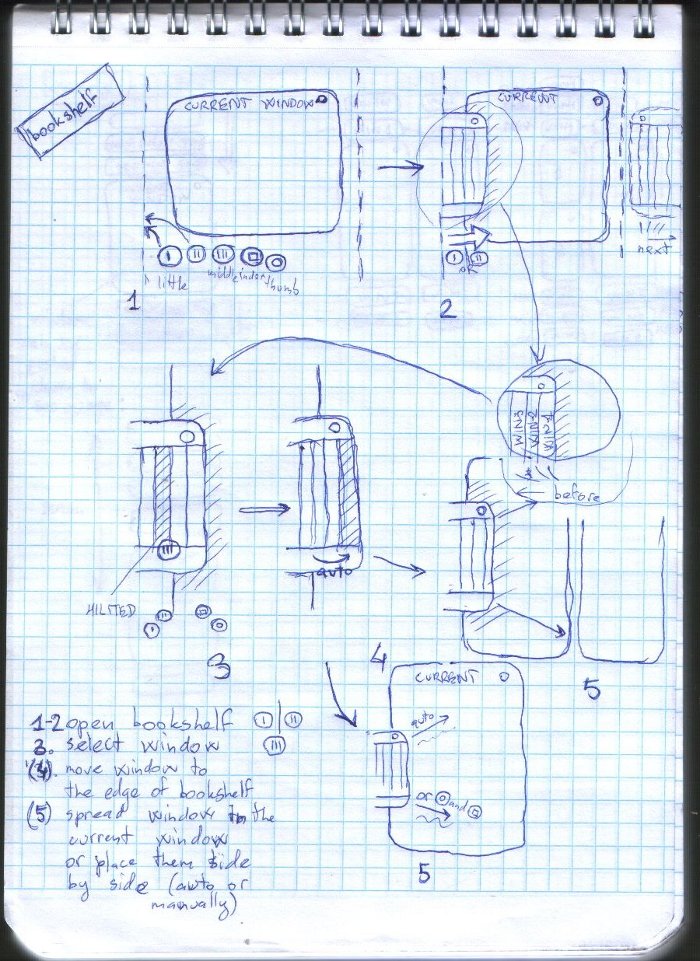 bookshelf
CURRENT WINDOW
CURRENT
I II III
little middle index thumb
I or II
next
1
2
WIN3
WIN2
WIN1
before
III
auto
HILITED
I II
3
4
5
CURRENT
auto
or and
5
1-2 open bookshelf I II
3. select window III
(4). move window to
the edge of bookshelf
(5) spread window to the
current window
or place them side
by side (auto or
manually)